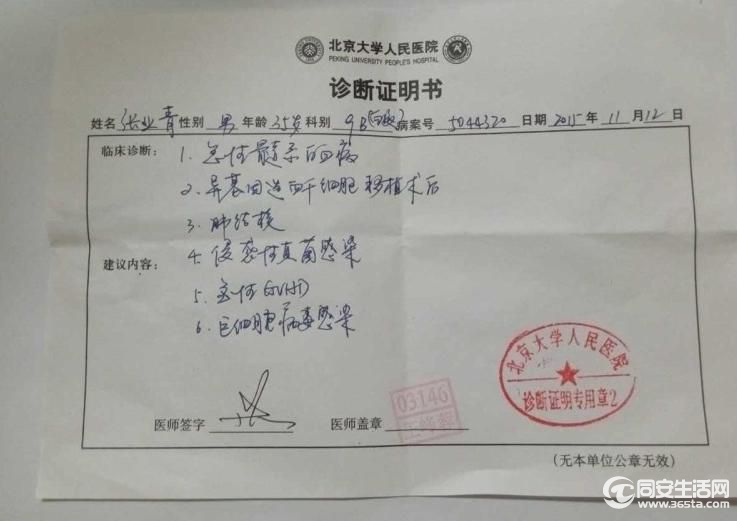 北京大学人民医院
PEKING UNIVERSITY PEOPLE'S HOSPITAL
诊断证明书
姓名 张业青 性别 男 年龄 35岁 科别 9B(白血) 病案号 5044320 日期 2015 年 11 月 12 日
临床诊断: 1. 急性髓系白血病
2. 异基因造血干细胞移植术后
3. 肺结核
建议内容: 4. 侵袭性真菌感染
5. 急性GVHD
6. 巨细胞病毒感染
北京大学人民医院
诊断证明专用章2
03146
医师签字 医师盖章
(无本单位公章无效)
同安生活网
www.365ta.com